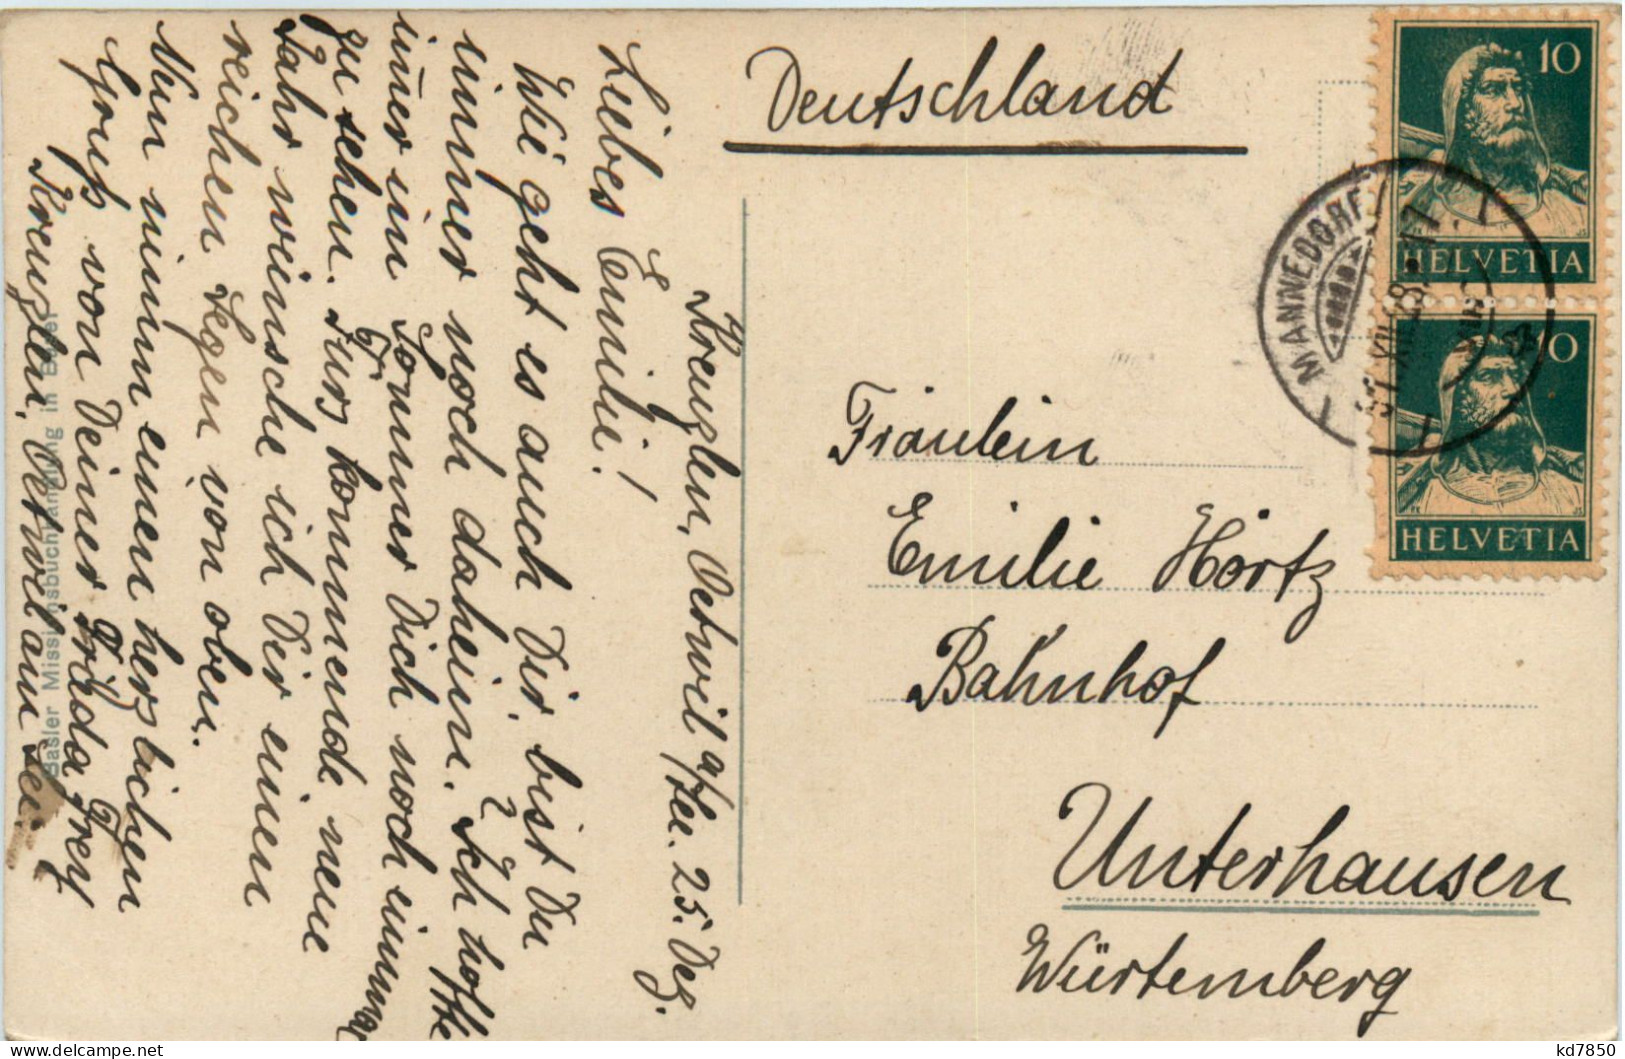 Kreuzlen, Oetwil a/See. 25. Dez.
Liebes Emilie!
Wie geht es auch Dir, bist Du
immer noch daheim? Ich hoffte
im̄er im Sommer Dich noch einmal
zu sehen. Fürs kommende neue
Jahr wünsche ich Dir einen
reichen Segen von oben.
Nun nimm einen herzlichen
Gruß von Deiner Frieda Frey
Kreuzlen, Oetwil am See.
Basler Missionsbuchhandlung in Basel
Deutschland
Fräulein
Emilie Hörtz
Bahnhof
Unterhausen
Würtemberg
10
HELVETIA
10
HELVETIA
MÄNNEDORF
kd7850